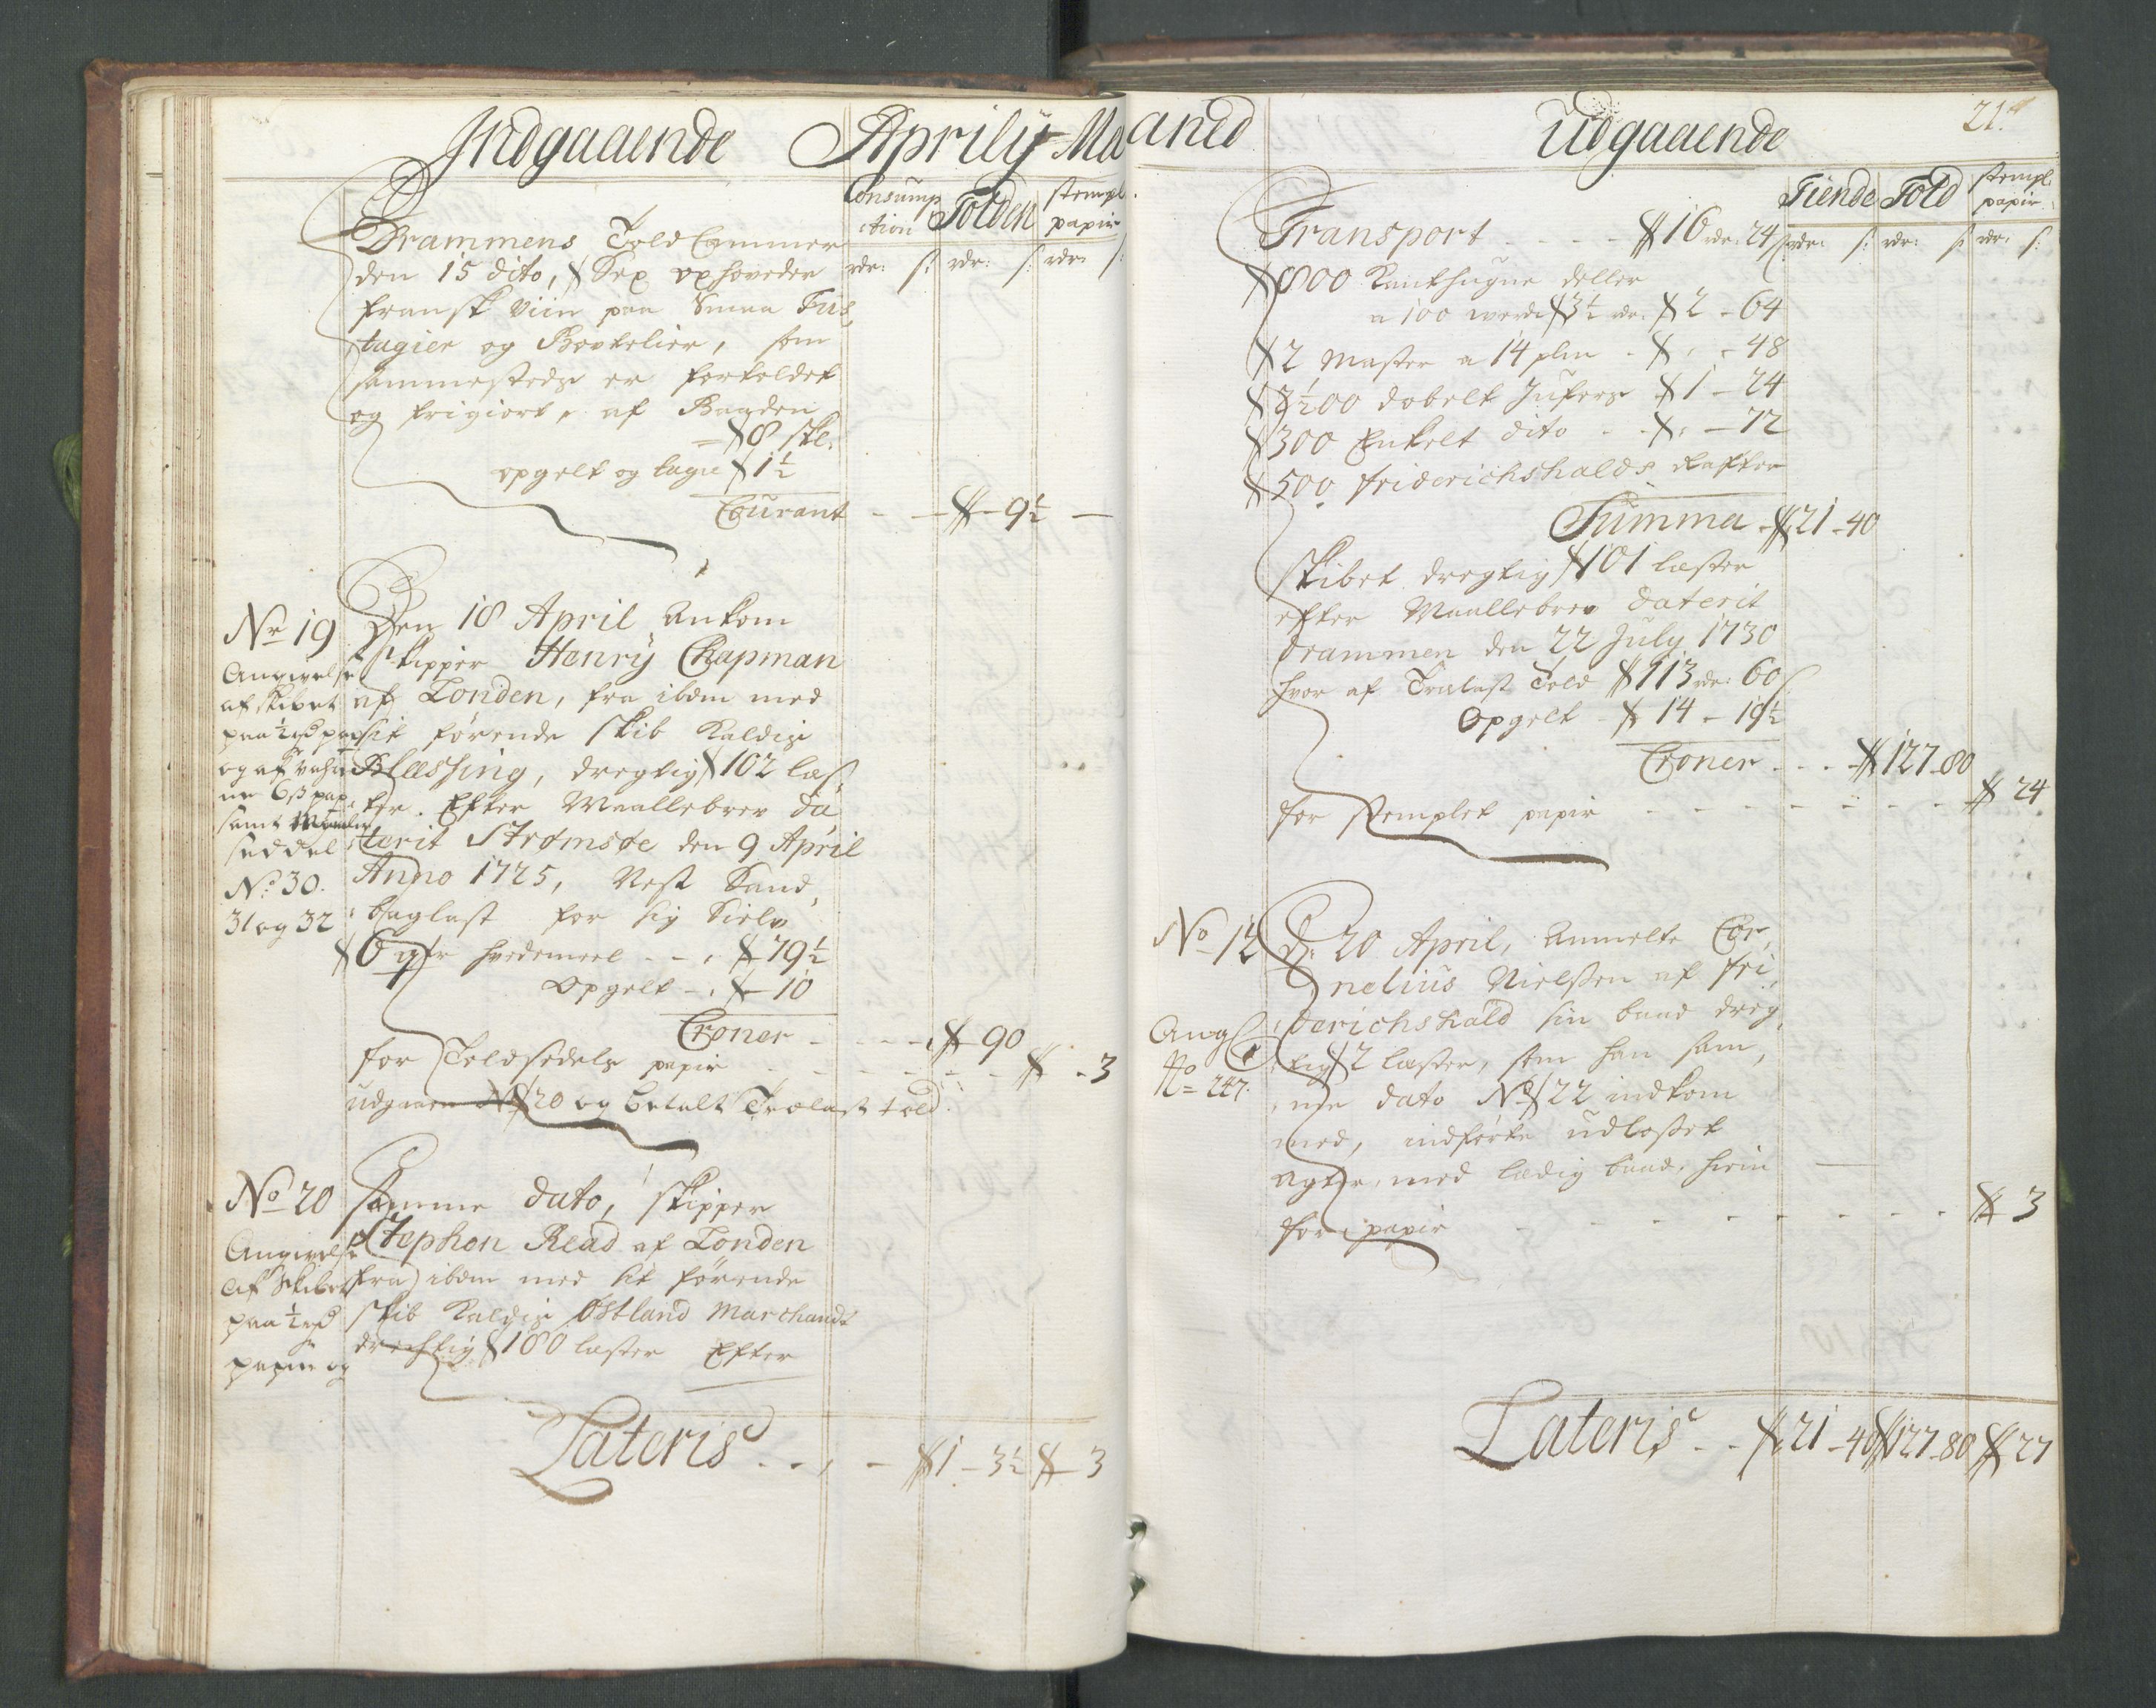 Indgaaende Aprily Maaned
Consump
ction
Tolden
stempl.
papir
rdr: s: rdr: s: rdr: s:
Drammens Told Cammer
den 15 dito, Sex oxhoveder
fransk Viin paa Smaa Fus,
tagier og Boutelier, som
sammesteds er fortoldet
og frigiort, af Baaden
8 sk.
opgelt og lage 1½
Courant - - 9½ -
No 19
Angivelse
af skibet
paa ½ rd papir
og af vahre
ne 6 s pap
samt
seddel
No 30.
31 og 32
Den 18 April Ankom
skipper Henry Chapman
af Londen, fra ibdm med
sit førende skib Kaldis
Blessing, dregtig 102 læs,
ter. Efter Maallebrev da
terit Strømsøe den 9 April
Anno 1725, Nest Sand,
baglast for sig Sielv
6 qtr hvedemeel - - 79½
Opgelt - 10
Croner - - - - 90
for Toldsedels papir - - - - - 3
udgaaen No 20 og betalt Trælast told.
No 20
Angivelse
af skibet
paa ½ rd
papir og
samme dato, skipper
Stephen Read af Londen
fra ibdm med sit førende
skib Kaldis Østland Marchandt
drechtig 180 læster Efter
Lateris - - - 1 - 3½ - 3
21.
Udgaaende
Tiende Told stempl:
papir
rdr: s: rdr: s: rdr: s:
Transport - - - - 16 rdr: 24 s
800 Kanthugne deller
a 100 werdi 3½ rdr: 2 - 64
2 Master a 14 plm - - 48
3½00 dobelt Jufers 1 - 24
300 Enkelt dito - - - 72
500 friderichshalds Rafter
Summa - 21 - 40
Skibet dregtig 101 læster
efter Maallebrev daterit
Drammen den 22 July 1730
hvor af Trælast Told 113 rdr: 60 s
Opgelt - 14 - 19½
Croner - - - 127 - 80
for stemplet papir - - - - - - - 24
No 12
Ang
No 247.
D: 20 April, Anmelte Cor,
nelius Nielssen af fri,
derichshald sin baad dreg,
tig 2 læster, som han sam,
me dato No 22 indkom
med, indførte udlosset
agter, med ledig baad, herin
for papir - - - - - - - - 3
Lateris - - 21 - 40 127 - 80 27